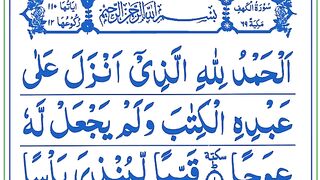 سُوْرَةُ الْكَهْفِ
مَكِّيَّةٌ ٦٩
بِسْمِ اللّٰهِ الرَّحْمٰنِ الرَّحِيْمِ
اٰيَاتُهَا ١١٠
رُكُوْعُهَا ١٢
اَلْحَمْدُ لِلّٰهِ الَّذِيْٓ اَنْزَلَ عَلٰى
عَبْدِهِ الْكِتٰبَ وَلَمْ يَجْعَلْ لَّهٗ
عِوَجًا ١ سكتة قَيِّمًا لِّيُنْذِرَ بَاْسًا